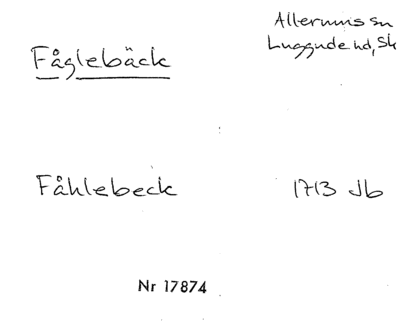 Fåglebäck
Allerums sn
Luggude hd, Sk
Fåhlebeck
1713 Jb
Nr 17874